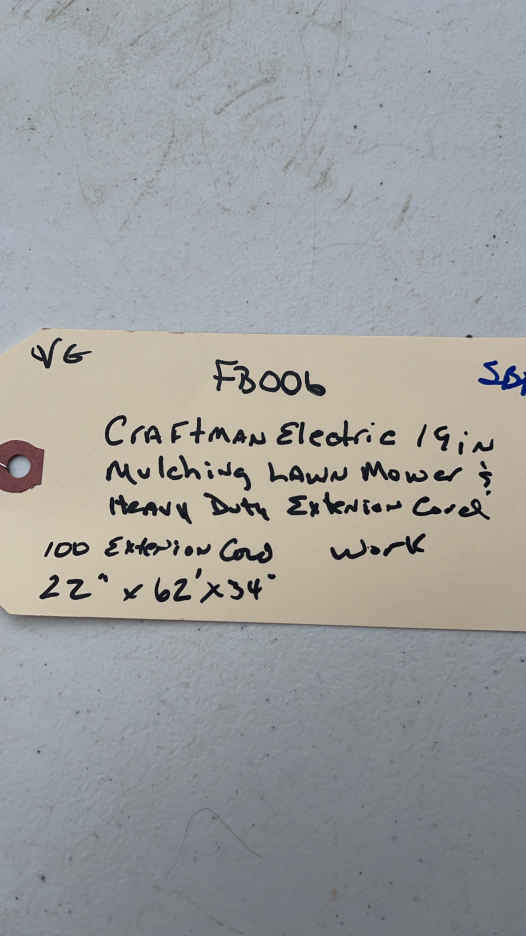 VG
FB006 SB
CRAFtMAN Electric 19 iN
Mulching LAWN Mower &
HEAVY Duty Extenion Cord
100 Extenion Cord Work
22" x 62' x 34"